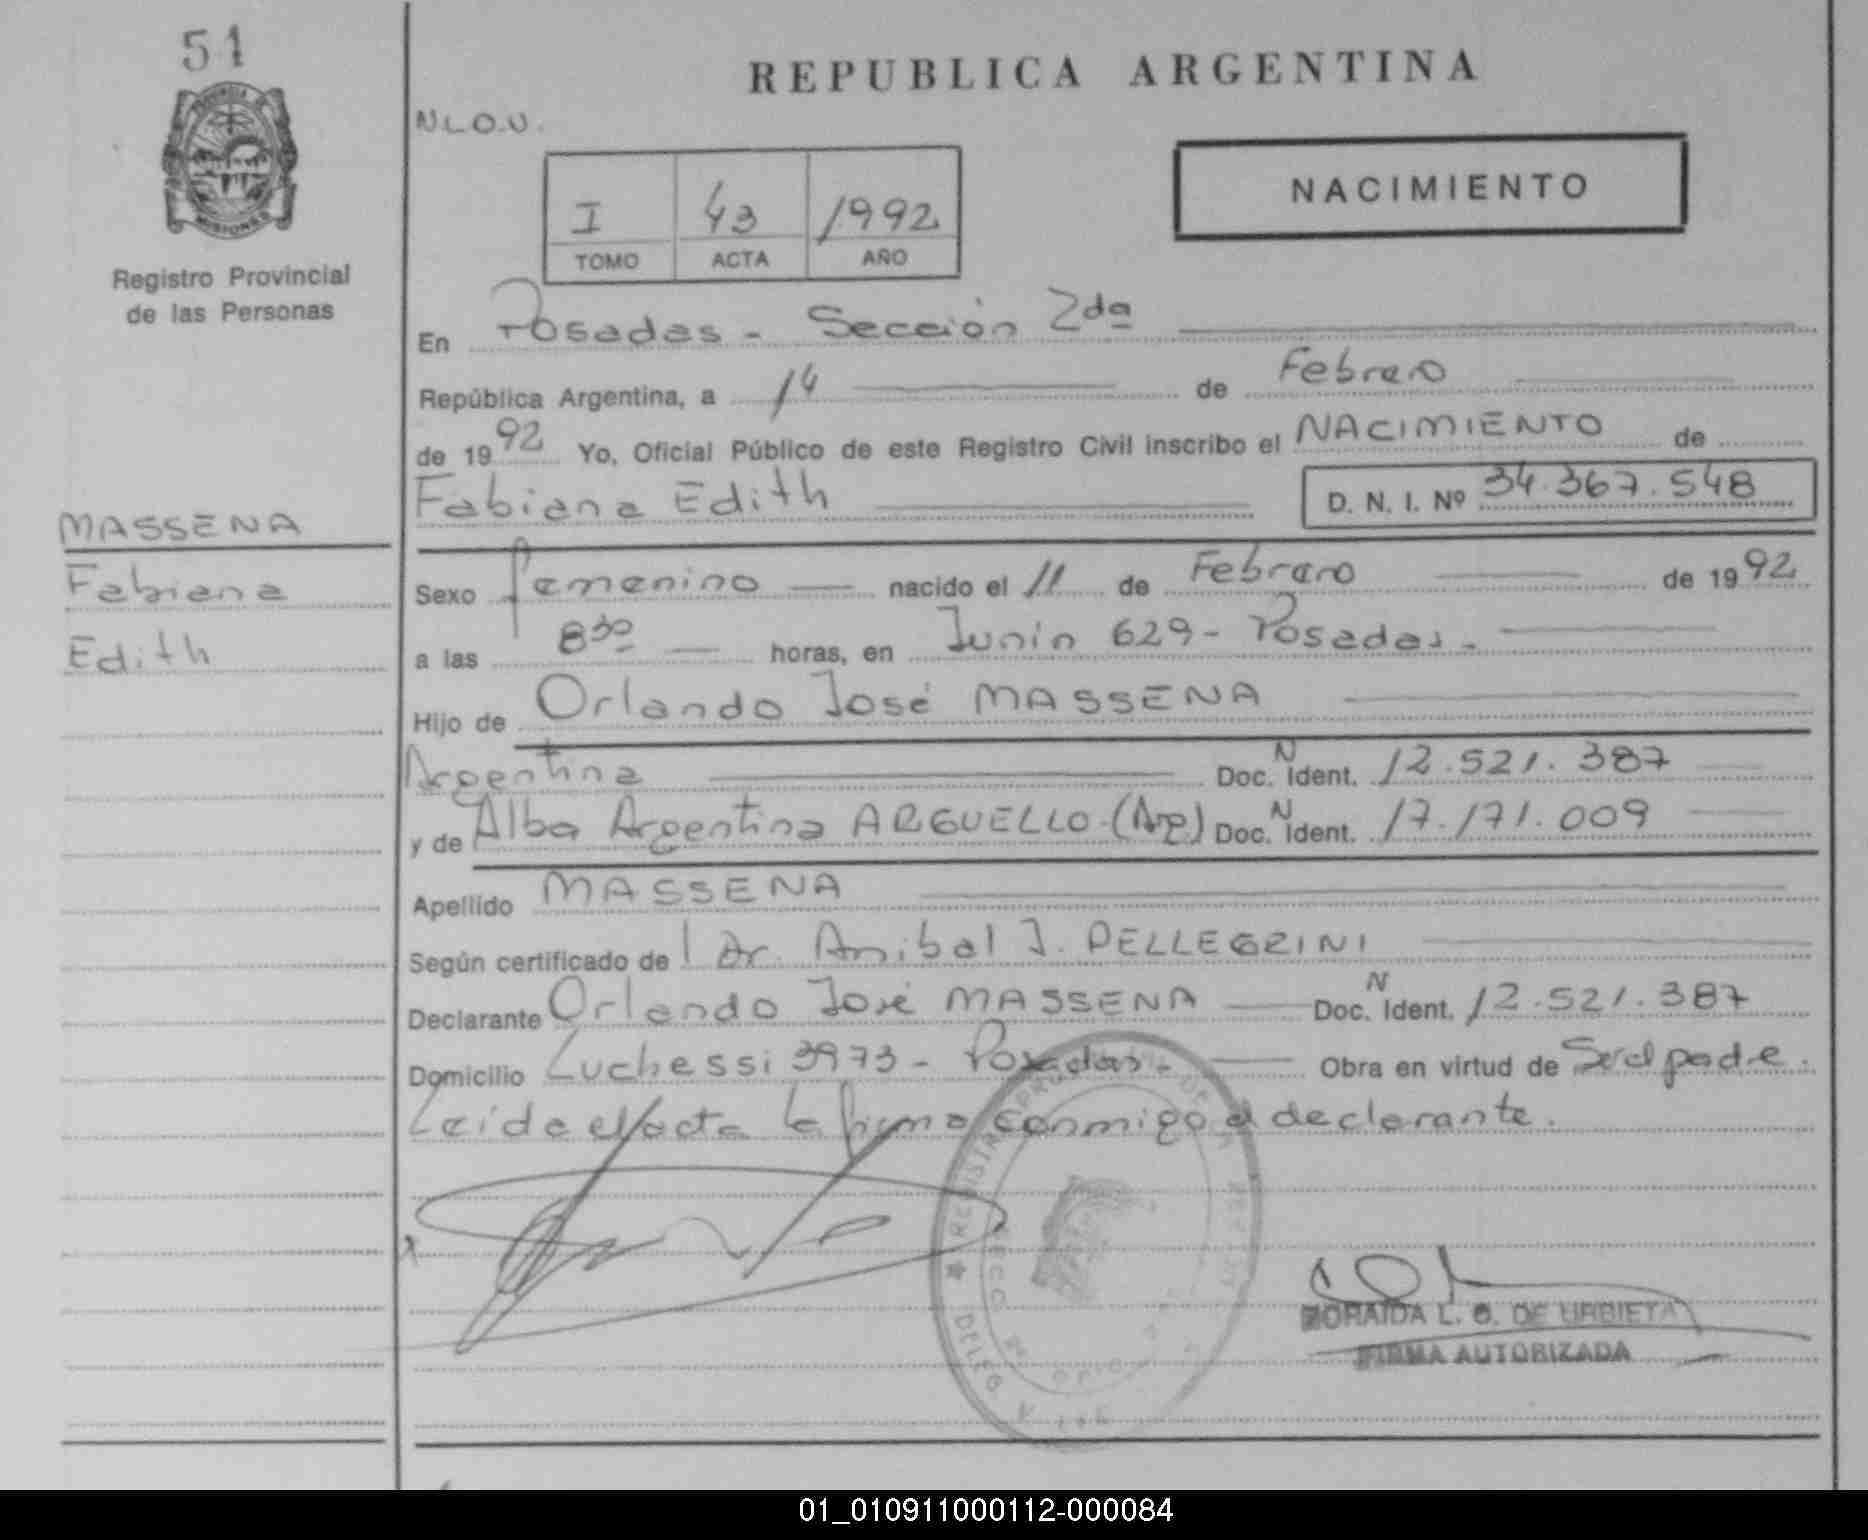 51
REPUBLICA ARGENTINA
N.L.O.U.
NACIMIENTO
I 43 1992
TOMO ACTA AÑO
Registro Provincial
de las Personas
En Posadas - Sección 2da
República Argentina, a 14 de Febrero
de 1992 Yo, Oficial Público de este Registro Civil inscribo el NACIMIENTO de
Fabiana Edith D. N. I. Nº 34.367.548
MASSENA
Fabiana
Edith
Sexo femenino nacido el 11 de Febrero de 1992
a las 8 30 horas, en Junín 629 - Posadas.-
Hijo de Orlando José MASSENA
Argentina Doc. N Ident. 12.521.387
y de Alba Argentina ARGUELLO (Arg) Doc. N Ident. 17.171.009
Apellido MASSENA
Según certificado de l Dr. Anibal J. PELLEGRINI
Declarante Orlando José MASSENA Doc. N Ident. 12.521.387
Domicilio Luchessi 3973 - Posadas.- Obra en virtud de Ser el padre.
Leída el acta la firma conmigo el declarante.
REGISTRO PROVINCIAL DE
ZORAIDA L. O. DE URBIETA
FIRMA AUTORIZADA
01_010911000112-000084